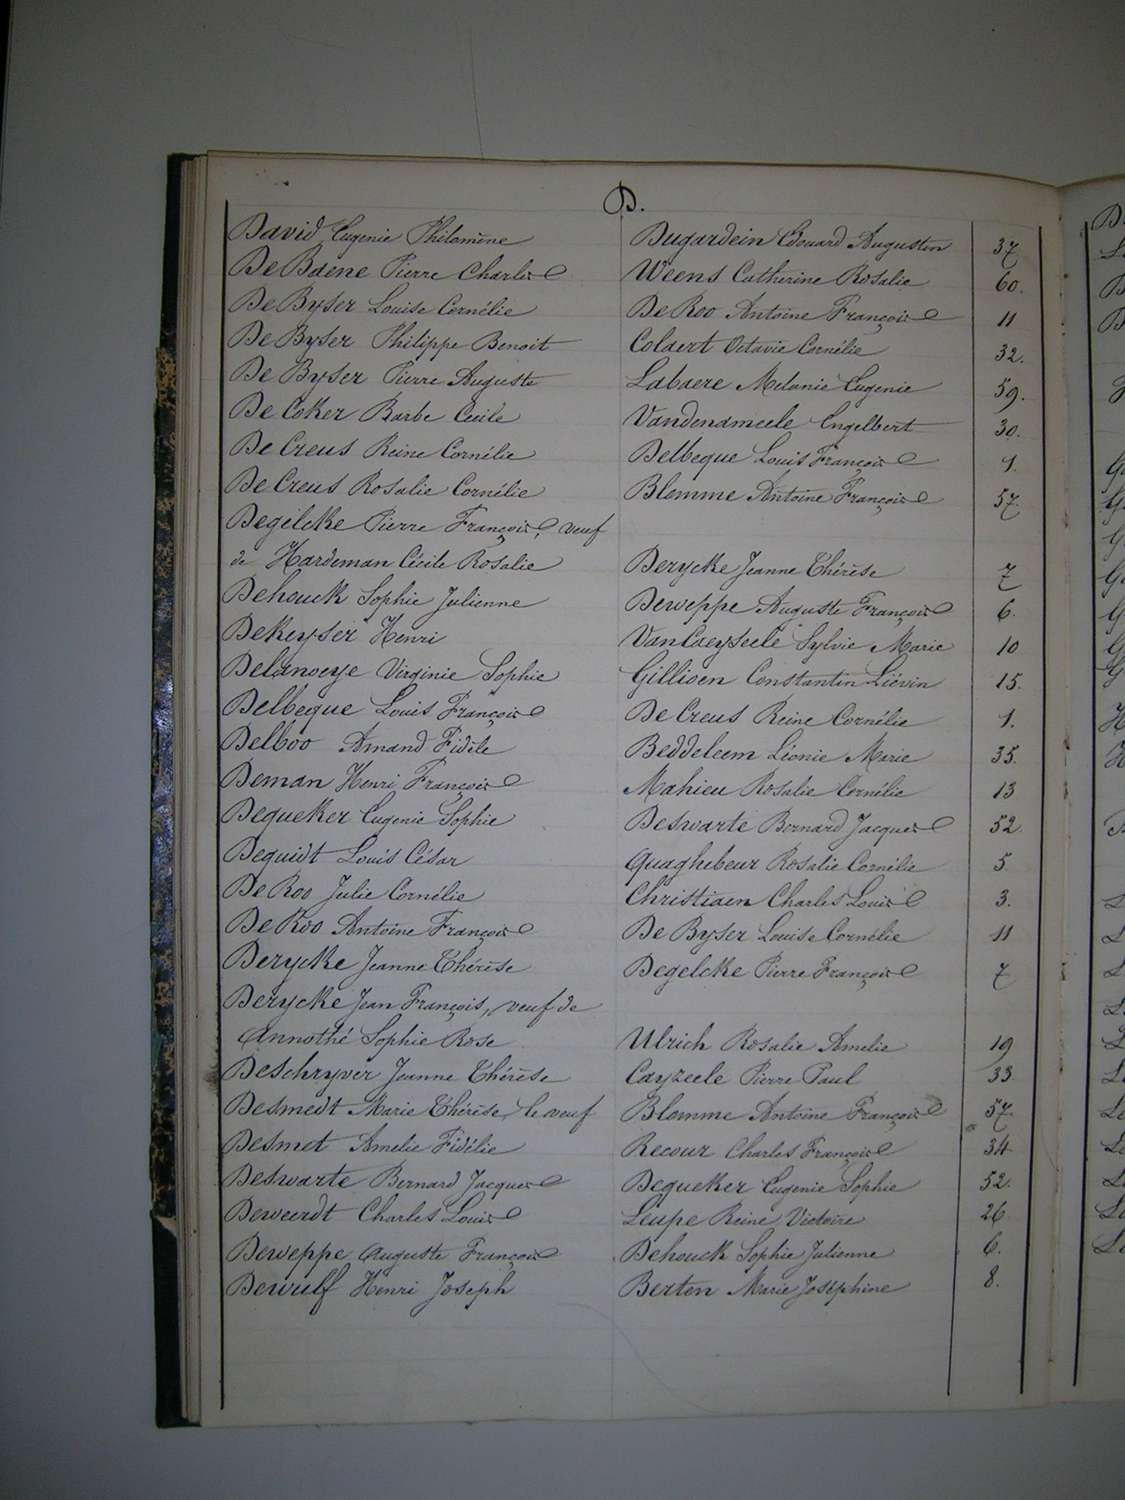 D.
David Eugenie Philomène Dugardein Edouard Augustin 37
De Baene Pierre Charles Weens Catherine Rosalie 60.
De Byser Louise Cornélie De Roo Antoine François 11
De Byser Philippe Benoit Colaert Octavie Cornélie 32.
De Byser Pierre Auguste Labaere Melanie Eugenie 59.
De Coker Barbe Cécile Vandenameele Engelbert 30.
De Creus Reine Cornélie Delbeque Louis François 1.
De Creus Rosalie Cornélie Blomme Antoine François 57.
Degelcke Pierre François, veuf
de Hardeman Cécile Rosalie Derycke Jeanne Thérèse 7
Dehouck Sophie Julienne Deweppe Auguste François 6.
Dekeyser Henri VanCaeyseele Sylvie Marie 10
Delanoeye Virginie Sophie Gillioen Constantin Liévin 15.
Delbeque Louis François De Creus Reine Cornélie 1.
Delboo Amand Fidèle Beddeleem Léonie Marie 35.
Deman Henri François Mahieu Rosalie Cornélie 13
Dequeker Eugenie Sophie Deswarte Bernard Jacques 52.
Dequidt Louis César Quaghebeur Rosalie Cornélie 5.
De Roo Julie Cornélie Christiaen Charles Louis 3.
De Roo Antoine François De Byser Louise Cornélie 11
Derycke Jeanne Thérèse Degelcke Pierre François 7
Derycke Jean François, veuf de
Annothé Sophie Rose Ulrich Rosalie Amelie 19
Deschryver Jeanne Thérèse Cayzeele Pierre Paul 33
Desmedt Marie Thérèse, le veuf Blomme Antoine François 57.
Desmet Amelie Fidélie Recour Charles François 34
Deswarte Bernard Jacques Dequeker Eugenie Sophie 52.
Deweerdt Charles Louis Leupe Reine Victoire 26
Deweppe Auguste François Dehouck Sophie Julienne 6.
Dewulf Henri Joseph Berten Marie Joséphine 8.